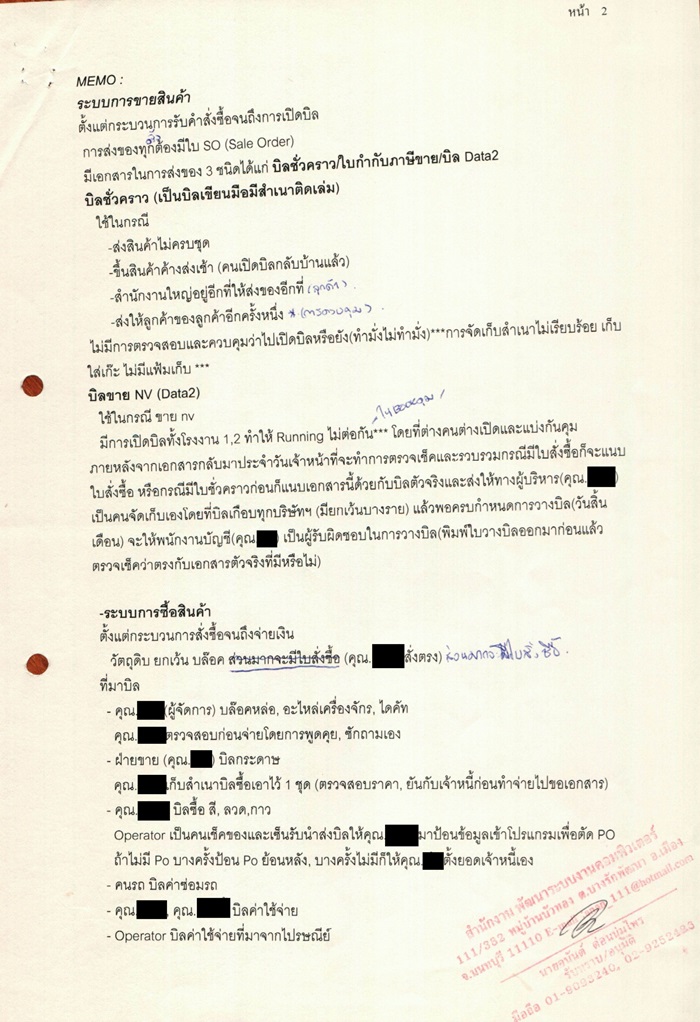 หน้า 2
MEMO :
ระบบการขายสินค้า
ตั้งแต่กระบวนการรับคำสั่งซื้อจนถึงการเปิดบิล
การส่งของทุกต้องมีใบ SO (Sale Order)
มีเอกสารในการส่งของ 3 ชนิดได้แก่ บิลชั่วคราว/ใบกำกับภาษีขาย/บิล Data2
บิลชั่วคราว (เป็นบิลเขียนมือมีสำเนาติดเล่ม)
ใช้ในกรณี
-ส่งสินค้าไม่ครบชุด
-ขึ้นสินค้าค้างส่งเช้า (คนเปิดบิลกลับบ้านแล้ว)
-สำนักงานใหญ่อยู่อีกที่ให้ส่งของอีกที่ (ลูกค้า).
-ส่งให้ลูกค้าของลูกค้าอีกครั้งหนึ่ง * (ควบคุม).
ไม่มีการตรวจสอบและควบคุมว่าไปเปิดบิลหรือยัง(ทำมั่งไม่ทำมั่ง)***การจัดเก็บสำเนาไม่เรียบร้อย เก็บ
ใส่เก๊ะ ไม่มีแฟ้มเก็บ ***
บิลขาย NV (Data2)
ใช้ในกรณี ขาย nv
มีการเปิดบิลทั้งโรงงาน 1,2 ทำให้ Running ไม่ต่อกัน*** โดยที่ต่างคนต่างเปิดและแบ่งกันคุม
ภายหลังจากเอกสารกลับมาประจำวันเจ้าหน้าที่จะทำการตรวจเช็คและรวบรวมกรณีมีใบสั่งซื้อก็จะแนบ
ใบสั่งซื้อ หรือกรณีมีใบชั่วคราวก่อนก็แนบเอกสารนี้ด้วยกับบิลตัวจริงและส่งให้ทางผู้บริหาร(คุณ. )
เป็นคนจัดเก็บเองโดยที่บิลเกือบทุกบริษัทฯ (มียกเว้นบางราย) แล้วพอครบกำหนดการวางบิล(วันสิ้น
เดือน) จะให้พนักงานบัญชี(คุณ ) เป็นผู้รับผิดชอบในการวางบิล(พิมพ์ใบวางบิลออกมาก่อนแล้ว
ตรวจเช็คว่าตรงกับเอกสารตัวจริงที่มีหรือไม่)
-ระบบการซื้อสินค้า
ตั้งแต่กระบวนการสั่งซื้อจนถึงจ่ายเงิน
วัตถุดิบ ยกเว้น บล๊อค ส่วนมากจะมีใบสั่งซื้อ (คุณ. สั่งตรง) ส่วนมากจะมีใบสั่งซื้อ.
ที่มาบิล
- คุณ. (ผู้จัดการ) บล๊อคหล่อ, อะไหล่เครื่องจักร, ไดคัท
คุณ. ตรวจสอบก่อนจ่ายโดยการพูดคุย, ซักถามเอง
- ฝ่ายขาย (คุณ. ) บิลกระดาษ
คุณ. เก็บสำเนาบิลซื้อเอาไว้ 1 ชุด (ตรวจสอบราคา, ยันกับเจ้าหนี้ก่อนทำจ่ายไปขอเอกสาร)
- คุณ. บิลซื้อ สี, ลวด,กาว
Operator เป็นคนเช็คของและเซ็นรับนำส่งบิลให้คุณ. มาป้อนข้อมูลเข้าโปรแกรมเพื่อตัด PO
ถ้าไม่มี Po บางครั้งป้อน Po ย้อนหลัง, บางครั้งไม่มีก็ให้คุณ. ตั้งยอดเจ้าหนี้เอง
- คนรถ บิลค่าซ่อมรถ
- คุณ. , คุณ. บิลค่าใช้จ่าย
- Operator บิลค่าใช้จ่ายที่มาจากไปรษณีย์
สำนักงาน พัฒนาระบบงานคอมพิวเตอร์
111/332 หมู่บ้านบัวทอง ต.บางรักพัฒนา อ.เมือง
จ.นนทบุรี 11110 111@hotmail.com
มือถือ 01-9092240, 02-9252493